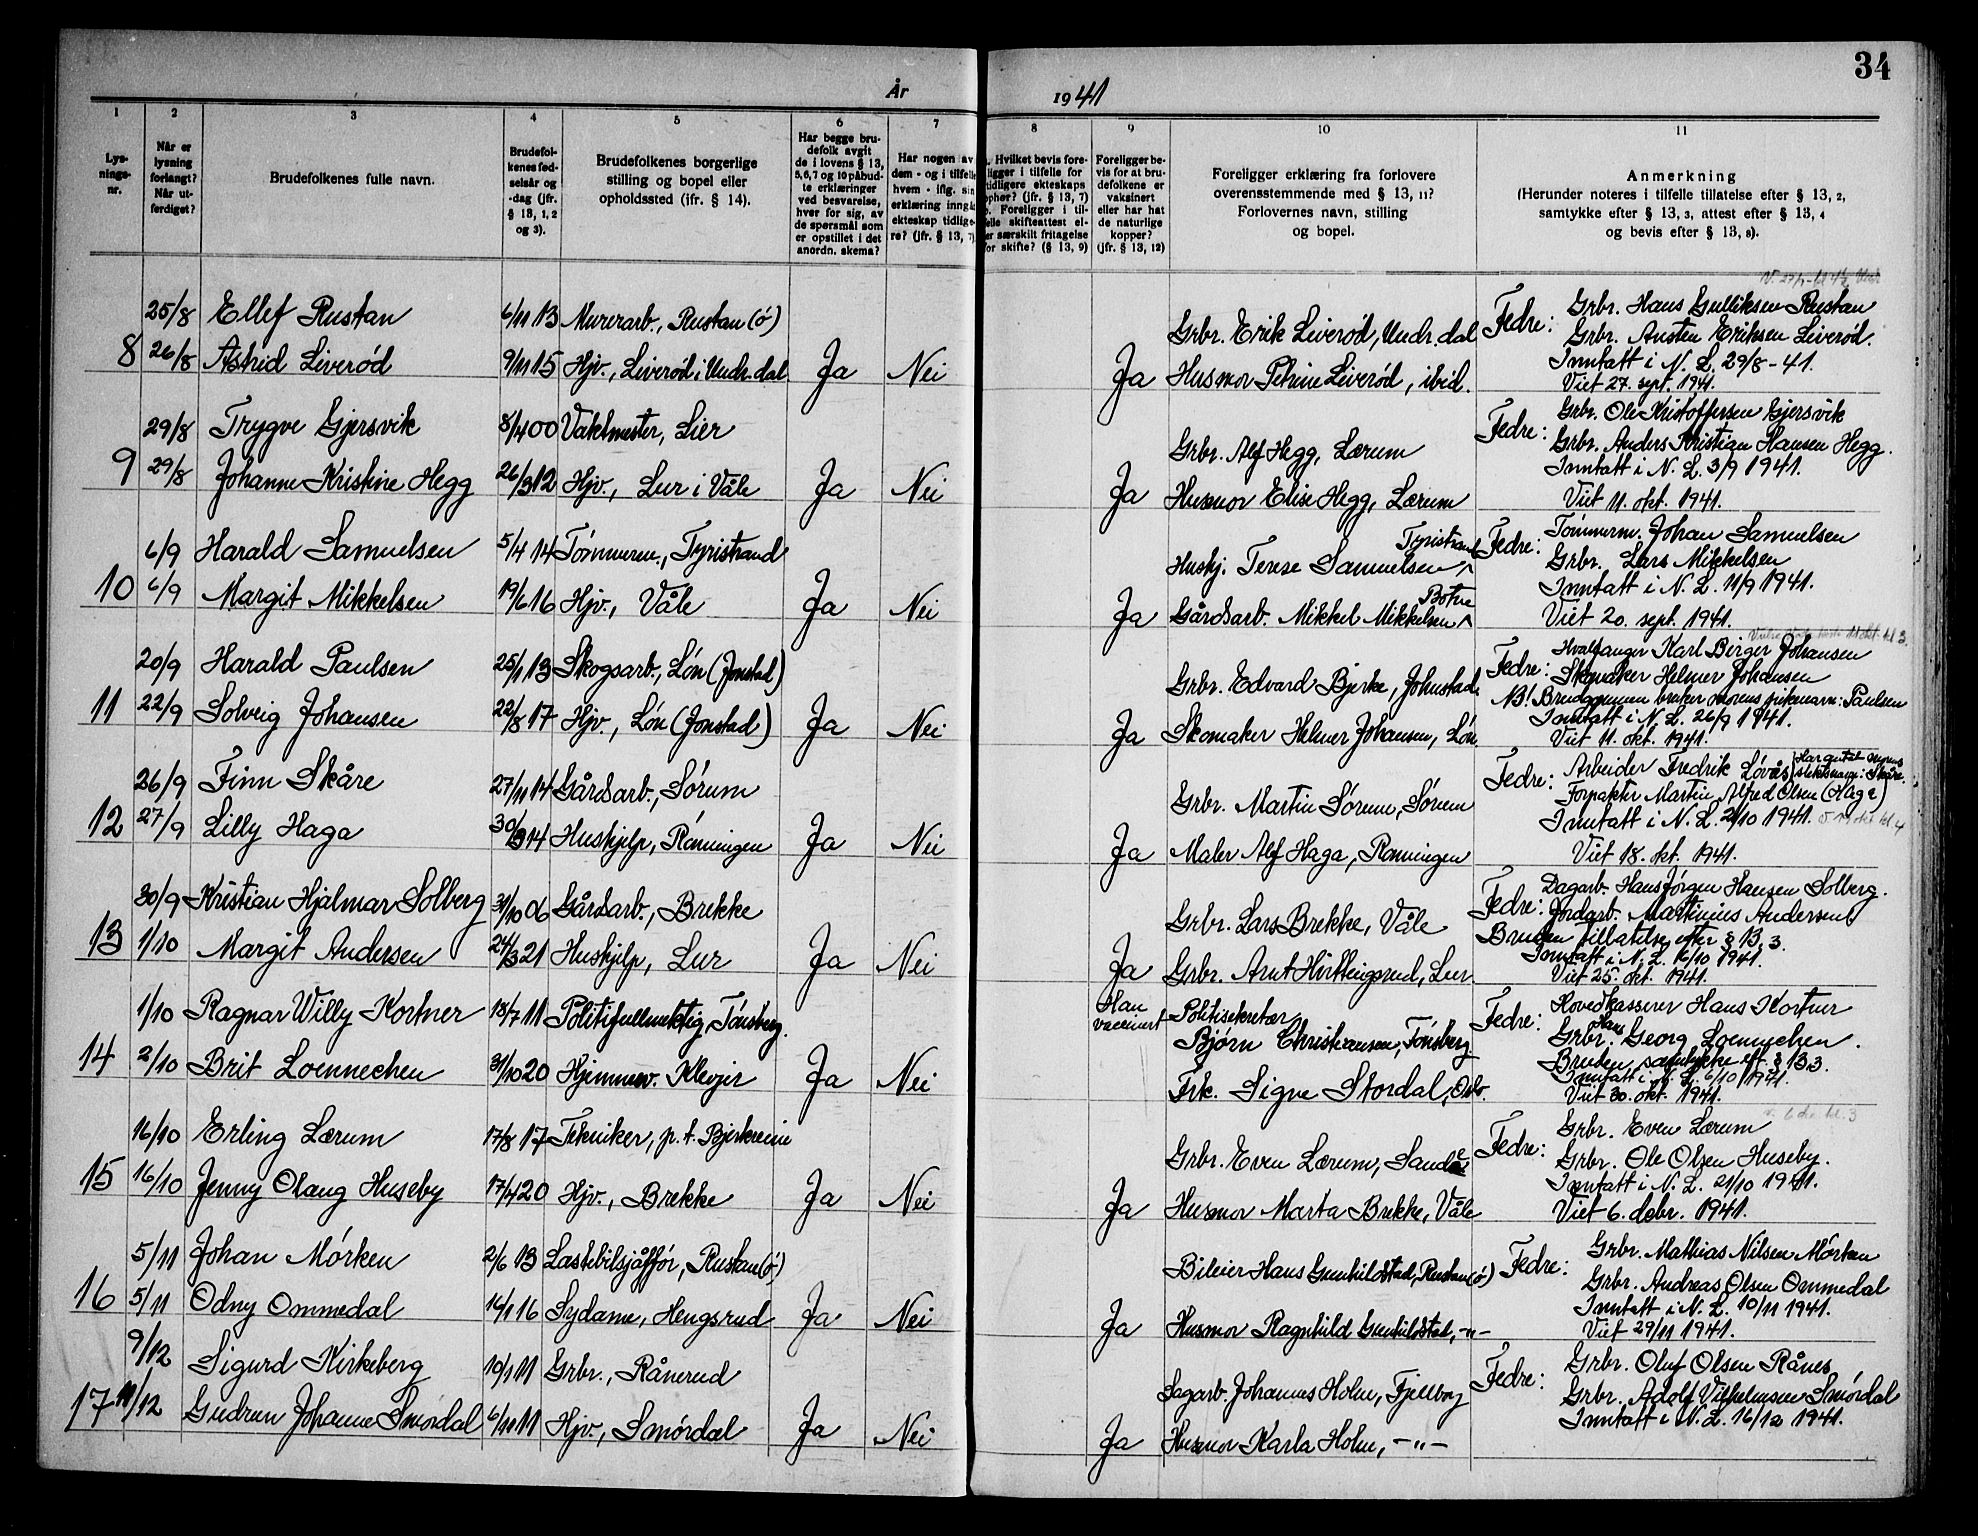 34
År 1941
1 2 3 4 5 6 7 8 9 10 11
Lys-
nings-
nr.
Når er
lysning
forlangt?
Når ut-
ferdiget?
Brudefolkenes fulle navn.
Brudefol-
kenes fød-
selsår og
-dag (jfr.
§ 13, 1, 2
og 3).
Brudefolkenes borgerlige
stilling og bopel eller
opholdssted (ifr. § 14).
Har begge bru-
defolk avgit
de i lovens § 13,
5,6,7 og 10 påbud-
te erklæringer
ved besvarelse,
hver for sig, av
de spørsmål som
er opstillet i det
anordn. skema?
Har nogen av
dem - og i tilfelle
hvem - iflg. sin
erklæring inngåt
ekteskap tidlige-
re? (jfr. § 13, 7)
. Hvilket bevis fore-
ligger i tilfelle for
tidligere ekteskaps
ophør? (jfr. § 13, 7)
b. Foreligger i til-
felle skifteattest el-
er særskilt fritagelse
for skifte? (§ 13, 9)
Foreligger be-
vis for at bru-
defolkene er
vaksinert
eller har hat
de naturlige
kopper?
(jfr. § 13, 12)
Foreligger erklæring fra forlovere
overensstemmende med § 13, 11?
Forlovernes navn, stilling
og bopel.
Anmerkning
(Herunder noteres i tilfelle tillatelse efter § 13, 2,
samtykke efter § 13, 3, attest efter § 13, 4
og bevis efter § 13, 8).
25/8 Ellef Rustan 6/11 13 Murerarb., Rustan (ö) Grbr. Erik Liverød, Undr.dal Fedre: Grbr. Hans Gulliksen Rustan
Grbr. Austen Eriksen Liverød.
8 26/8 Astrid Liverød 9/11 15 Hjv., Liverød i Undr.dal Ja Nei Ja Husmor Petrine Liverød, ibid. Inntatt i N. L. 29/8-41.
Viet 27. sept. 1941.
29/8 Trygve Gjersvik 8/4 00 Vaktmester, Lier Grbr. Alf Hegg, Lærum Fedre: Grbr. Ole Kristoffersen Gjersvik
Grbr. Anders Kristian Hansen Hegg.
9 29/8 Johanne Kristine Hegg 26/3 12 Hjv., Lur i Våle Ja Nei Ja Husmor Elise Hegg, Lærum Inntatt i N. L. 3/9 1941.
Viet 11. okt. 1941.
6/9 Harald Samuelsen 5/4 14 Tømmerm., Tyristrand Huskj. Terese Samuelsen, Tyristrand Fedre: Tømmerm. Johan Samuelsen
Grbr. Lars Mikkelsen
10 6/9 Margit Mikkelsen 19/6 16 Hjv., Våle Ja Nei Ja Gårdsarb. Mikkel Mikkelsen, Botne Inntatt i N. L. 11/9 1941.
Viet 20. sept. 1941.
20/9 Harald Paulsen 25/11 13 Skogsarb., Løn (Jonstad) Grbr. Edvard Bjerke, Johnstad Fedre: Hvalfanger Karl Birger Johansen
Skomaker Helmer Johansen
11 22/9 Solveig Johansen 22/8 17 Hjv., Løn (Jonstad) Ja Nei Ja Skomaker Helmer Johansen, Løn. NB! Brudgommen bruker morens pikenavn: Paulsen
Inntatt i N. L. 26/9 1941.
Viet 11. okt. 1941.
26/9 Finn Skåre 27/11 14 Gårdsarb., Sørum Grbr. Martin Sørum, Sørum Fedre: Arbeider Fredrik Løvås
Forpakter Martin Alfred Olsen (Haga)
12 27/9 Lilly Haga 30/3 14 Huskjelp, Rønningen Ja Nei Ja Maler Alf Haga, Rønningen Inntatt i N. L. 2/10 1941.
Viet 18. okt. 1941.
30/9 Kristian Hjalmar Solberg 31/10 06 Gårdsarb., Brekke Grbr. Lars Brekke, Våle Fedre: Dagarb. Hans Jørgen Hansen Solberg.
Jordarb. Martinius Andersen
13 1/10 Margit Andersen 24/3 21 Huskjelp, Lur Ja Nei Ja Grbr. Arnt Hvittingsrud, Lur. Bruden tillatelse efter § 13, 3.
Inntatt i N. L. 6/10 1941.
Viet 25. okt. 1941.
1/10 Ragnar Willy Kortner 18/7 11 Politifullmektig, Tønsberg. Han vaccinert Politisekretær Bjørn Christiansen, Tønsberg Fedre: Hovedkasserer Hans Kortner
Grbr. Hans Georg Loennechen.
14 2/10 Brit Loennechen 31/10 20 Hjemmev. Klevjer Ja Nei Frk. Signe Stordal, Oslo. Bruden samtykke eft. § 13 3
Inntatt i N. L. 6/10 1941.
Viet 30. okt. 1941.
16/10 Erling Lærum 17/8 17 Tekniker, p. t. Bjerkreim Grbr. Even Lærum, Sande Fedre: Grbr. Even Lærum
Grbr. Ole Olsen Huseby.
15 16/10 Jenny Olaug Huseby 17/4 20 Hjv., Brekke Ja Nei Ja Husmor Marta Brekke, Våle Inntatt i N. L. 21/10 1941.
Viet 6. debr. 1941.
5/11 Johan Mørken 2/6 13 Lastebilsjåffør, Rustan (ö) Bileier Hans Gunhildstad, Rustan (ö) Fedre: Grbr. Mathias Nilsen Mørken
Grbr. Andreas Olsen Ommedal
16 5/11 Odny Ommedal 14/1 16 Sydame, Hengsrud Ja Nei Ja Husmor Ragnhild Gunhildstad, -"- Inntatt i N. L. 10/11 1941.
Viet 29/11 1941.
9/12 Sigurd Kirkeberg 10/1 11 Grbr., Rånerud Sagarb. Johannes Holm, Fjellborg Fedre: Grbr. Oluf Olsen Rånes
Grbr. Adolf Vilhelmsen Smørdal
17 11/12 Gudrun Johanne Smørdal 6/11 11 Hjv., Smørdal Ja Nei Ja Husmor Karla Holm, -"- Inntatt i N. L. 16/12 1941.